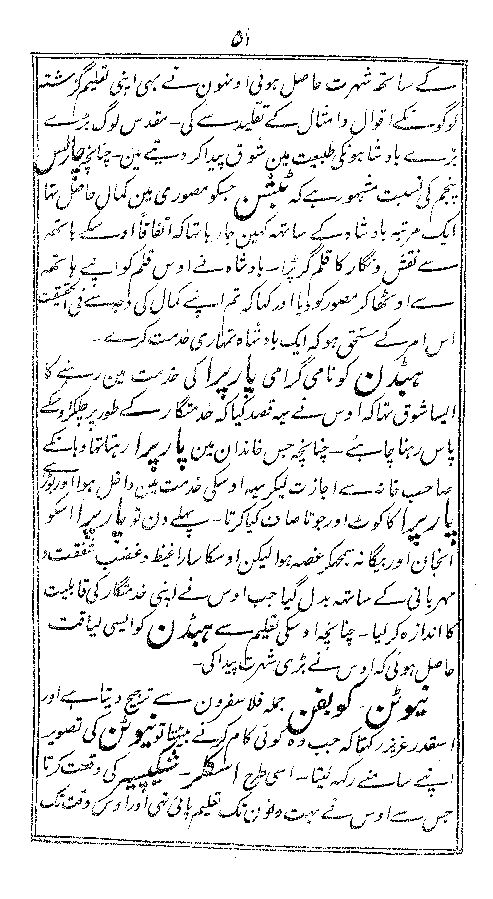 ۵۱
کے ساتھ شہرت حاصل ہوئی اونہون نے بھی اپنی تعلیم گزشتہ
لوگونکے اقوال وامثال کے تقلید سے کی۔ مقدس لوگ بڑے
بڑے بادشاہونکی طبیعت مین شوق پیدا کر دیتے ہین۔ چنانچہ چارلس
پنجم کی نسبت مشہور ہے کہ ٹیٹشن جسکو مصوری مین کمال حاصل تھا
ایک مرتبہ بادشاہ کے ساتھہ کہین جا رہا تھا کہ اتفاقاً اوسکے ہاتھہ
سے نقش ونگار کا قلم گر پڑا۔ بادشاہ نے اوس قلم کو اپنے ہاتھہ
سے اوٹھا کر مصور کو دیا اور کہا کہ تم اپنے کمال کی وجہ سے فی الحقیقت
اس امر کے مستحق ہو کہ ایک بادشاہ تمہاری خدمت کرے۔
ہیڈن کو نامی گرامی پارپرا کی خدمت مین رہنے کا
ایسا شوق تھا کہ اوس نے یہہ قصد کیا کہ خدمتگار کے طور پر جاکر اوسکے
پاس رہنا چاہئے۔ چنانچہ جس خاندان مین پارپرا رہتا تھا وہانکے
صاحب خانہ سے اجازت لیکر یہہ اوسکی خدمت مین داخل ہوا اور روز
پارپرا کا کوٹ اور جوتا صاف کیا کرتا۔ پہلے دن تو پارپرا اسکو
انجان اور بیگانہ سمجھکر غصہ ہوا لیکن اوسکا سارا غیظ وغضب شفقت و
مہربانی کے ساتھہ بدل گیا جب اوس نے اپنی خدمتگار کی قابلیت
کا اندازہ کر لیا۔ چنانچہ اوسکی تعلیم سے ہیڈن کو ایسی لیاقت
حاصل ہوئی کہ اوس نے بڑی شہرت پیدا کی۔
نیوٹن کو بفن جملہ فلاسفرون سے ترجیح دیتا ہے اور
اسقدر عزیز رکھتا کہ جب وہ کوئی کام کرنے بیٹھتا تو نیوٹن کی تصویر
اپنے سامنے رکھہ لیتا۔ اسی طرح اسکلر۔ شکسپیر کی وقعت کرتا
جس سے اوس نے بہت دنون تک تعلیم پائی تھی اور اوس وقت تک